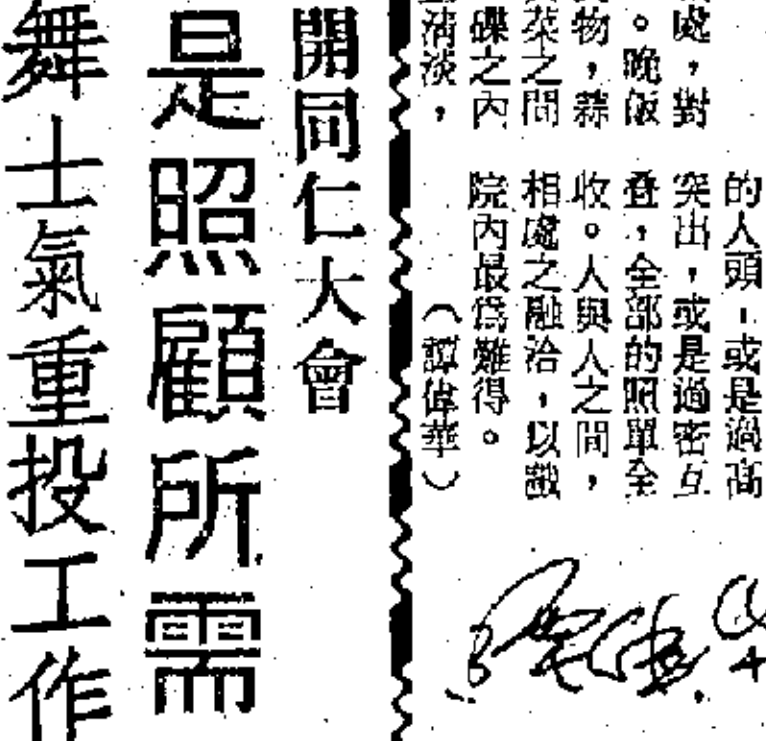 處，對
。晚飯
物，蒜
菜之間
碟之內
清淡，
的人頭，或是過高
突出，或是過密互
叠，全部的照單全
收。人與人之間，
相處之融洽，以戲
院內最爲難得。
（譚偉華）
開同仁大會
是照顧所需
舞士氣重投工作